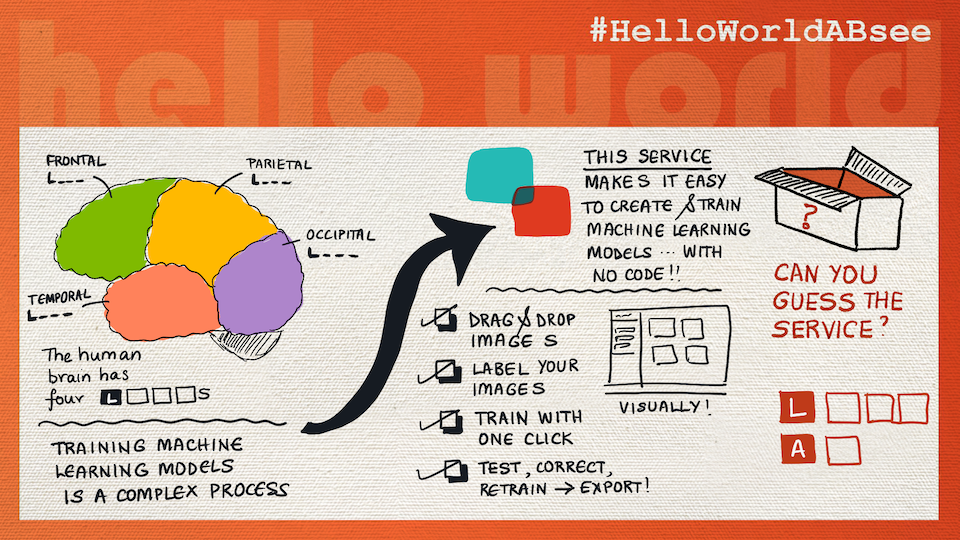 hello world
#HelloWorldABsee
FRONTAL
L---
PARIETAL
L---
OCCIPITAL
L---
TEMPORAL
L---
The human
brain has
four L□□□s
TRAINING MACHINE
LEARNING MODELS
IS A COMPLEX PROCESS
THIS SERVICE
MAKES IT EASY
TO CREATE & TRAIN
MACHINE LEARNING
MODELS ... WITH
NO CODE!!
DRAG & DROP
IMAGE S
LABEL YOUR
IMAGES
TRAIN WITH
ONE CLICK
TEST, CORRECT,
RETRAIN → EXPORT!
VISUALLY!
?
CAN YOU
GUESS THE
SERVICE?
L□□□
A□